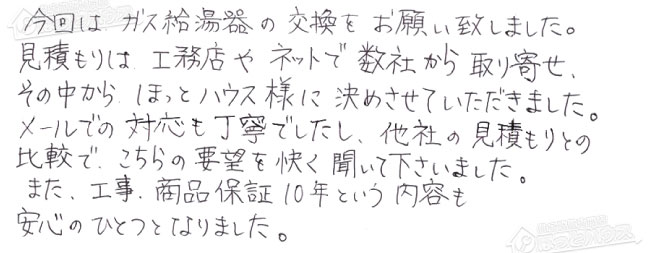 今回は ガス給湯器の交換をお願い致しました。
見積もりは 工務店や ネットで 数社から取り寄せ、
その中から ほっとハウス様に 決めさせていただきました。
メールでの 対応も丁寧でしたし、他社の見積もりとの
比較で、こちらの要望を快く聞いて下さいました。
また、工事、商品保証10年という内容も
安心のひとつとなりました。